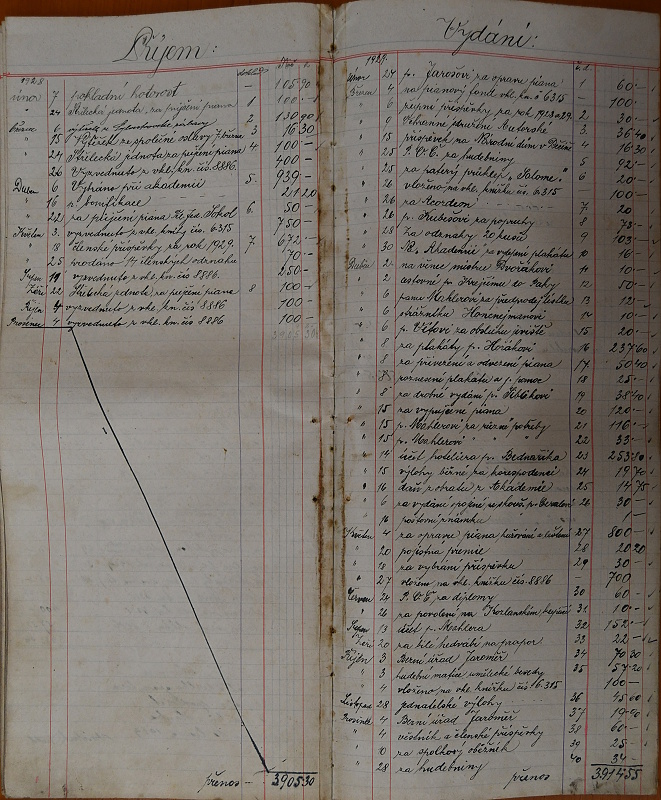 Příjem:
1928
únor 7 pokladní hotovost - 105 90
" 24 Střelecká jednota, za půjčení piana 1 100 -
březen 6 2 130 90
" 15 3 16 30
" 21 Střelecká jednota za půjčení piana 4 100 -
" 26 Vyzvednuto z vkl. kn. čís. 8886. 400 -
Duben 6 Vybráno při akademii 5 939 -
" 16 bonifikace 21 20
" 22 za půjčení piana Sokol 6. 50 -
Květen 3. vyzvednuto z vkl. knihy čís. 6315 750 -
" 18 členské příspěvky za rok 1929. 7. 672 -
" 25 prodáno 14 členských odznaků 70 -
Srpen 19 vyzvednuto z vkl. kn. čís 8886. 250 -
Září 22 Střelecká jednota za půjčení piana 8 100 -
Říjen 4 vyzvednuto z vkl. kn. čís 8886 100 -
Prosinec 4 vyzvednuto z vkl. kn. čís 8886 100 -
přenos - 3905 30
Vydání:
1929.
únor 27 p. Jarošovi za opravu piana 1 60 -
Březen 4 za pianový fond vkl. kn. č. 6315 - 100 -
" 6 příspěvky za rok 1928 a 29. 2 30 -
" 9 Ochranné sdružení Autorské 3 36 40
" 15 příspěvek na Národní dům v 4 16 30
" 25 za hudebniny 5 92 -
" 25 za notový přídělej "Salome" 6 20 -
" 26 vloženo na vkl. knížku čís. 6.315 - 100 -
" 26 za Acordeon 7 20
" 26 p. Kubešovi za popruhy 8 73 -
" 28 za odznaky 20 kusů 9 103 -
" 30 "Akademii" za vylepení plakátů 10 16 -
Duben 2 na věnec mistru Dvořákovi 11 10 -
" 2 cestovné p. Krejčímu do Prahy 12 50 -
" 6 paní Mahlerové za předprodej lístků 13 12 -
" 6 strážníku Honcnejmanovi 14 10 -
" 6 15 20 -
" 8 za plakáty p. Horákovi 16 237 60
" 8 za přivezení a odvezení piana 17 50 40
" 8 roznesení plakátů a p. pomoc 18 25 -
" 8 za drobné vydání p. 19 38 40
" 15 za vypůjčení piana 20 120 -
" 15 p. Mahlerovi za různé potřeby 21 116 -
" 15 p. Mahlerovi " " " 22 33 -
" 14 účet hoteliéra p. Bednaříka 23 253 70
" 15 výlohy běžné za korespondenci 24 19 70
" 16 daň z obratu z Akademie 25 14 75
" 6 za vydání spojené se zkouš. 26 30 -
" 16 poštovní známka - 1 -
Květen 4 za opravu piana kůžování a leštění 27 800 -
" 20 pojistná premie 28 20 20
" 18 za vybrání příspěvků 29 30 -
" 27 vloženo na vkl. knížku čís. 8886 - 700
Červen 24 za diplomy 30 60 -
" 26 za povolení na Kozlanském kopečku 31 10 -
Srpen 13 účet p. Mahlera 32 152 -
Září 20 za bílé hedvábí na prapor 33 22 -
Říjen 3 Berní úřad Jaroměř 34 70 30
" 3 hudební matice umělecké besedy 35 57 20
" 4 vloženo na vkl. knížku čís 6.315 100 -
Listopad 28 jednatelské výlohy 36 45 60
Prosinec 4 Berní úřad Jaroměř 37 19 90
" 4 věstník a členské příspěvky 38 60 -
" 10 za spolkový oběžník 39 25 -
" 28 za hudebniny 40 34 -
přenos 3914 55